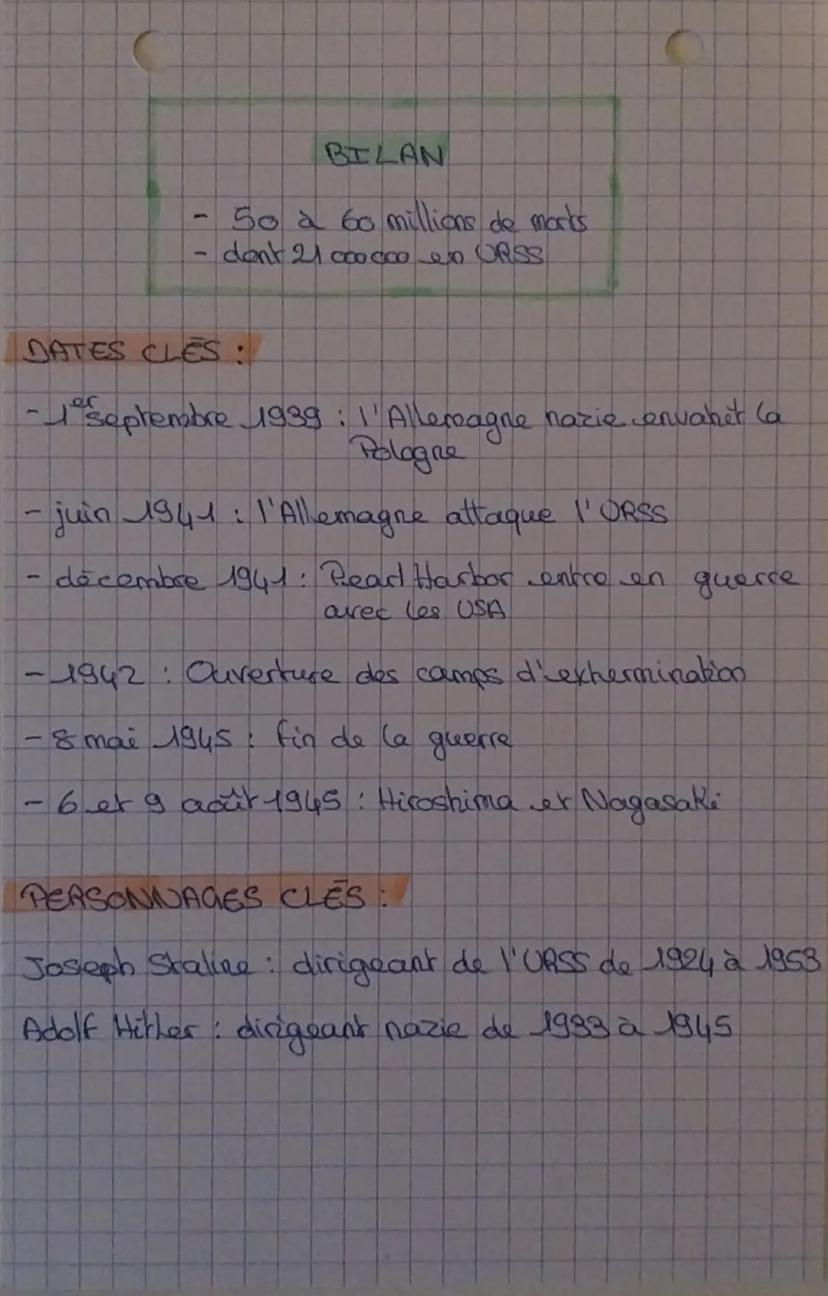 BILAN
- 50 à 60 millions de morts
- dont 21 000 000 en URSS
DATES CLÉS :
- 1er septembre 1939 : l'Allemagne nazie envahit la
Pologne
- juin 1941 : l'Allemagne attaque l'URSS
- décembre 1941 : Pearl Harbor entre en guerre
avec les USA
- 1942 : Ouverture des camps d'extermination
- 8 mai 1945 : fin de la guerre
- 6 et 9 août 1945 : Hiroshima et Nagasaki
PERSONNAGES CLÉS :
Joseph Staline : dirigeant de l'URSS de 1924 à 1953
Adolf Hitler : dirigeant nazie de 1933 à 1945